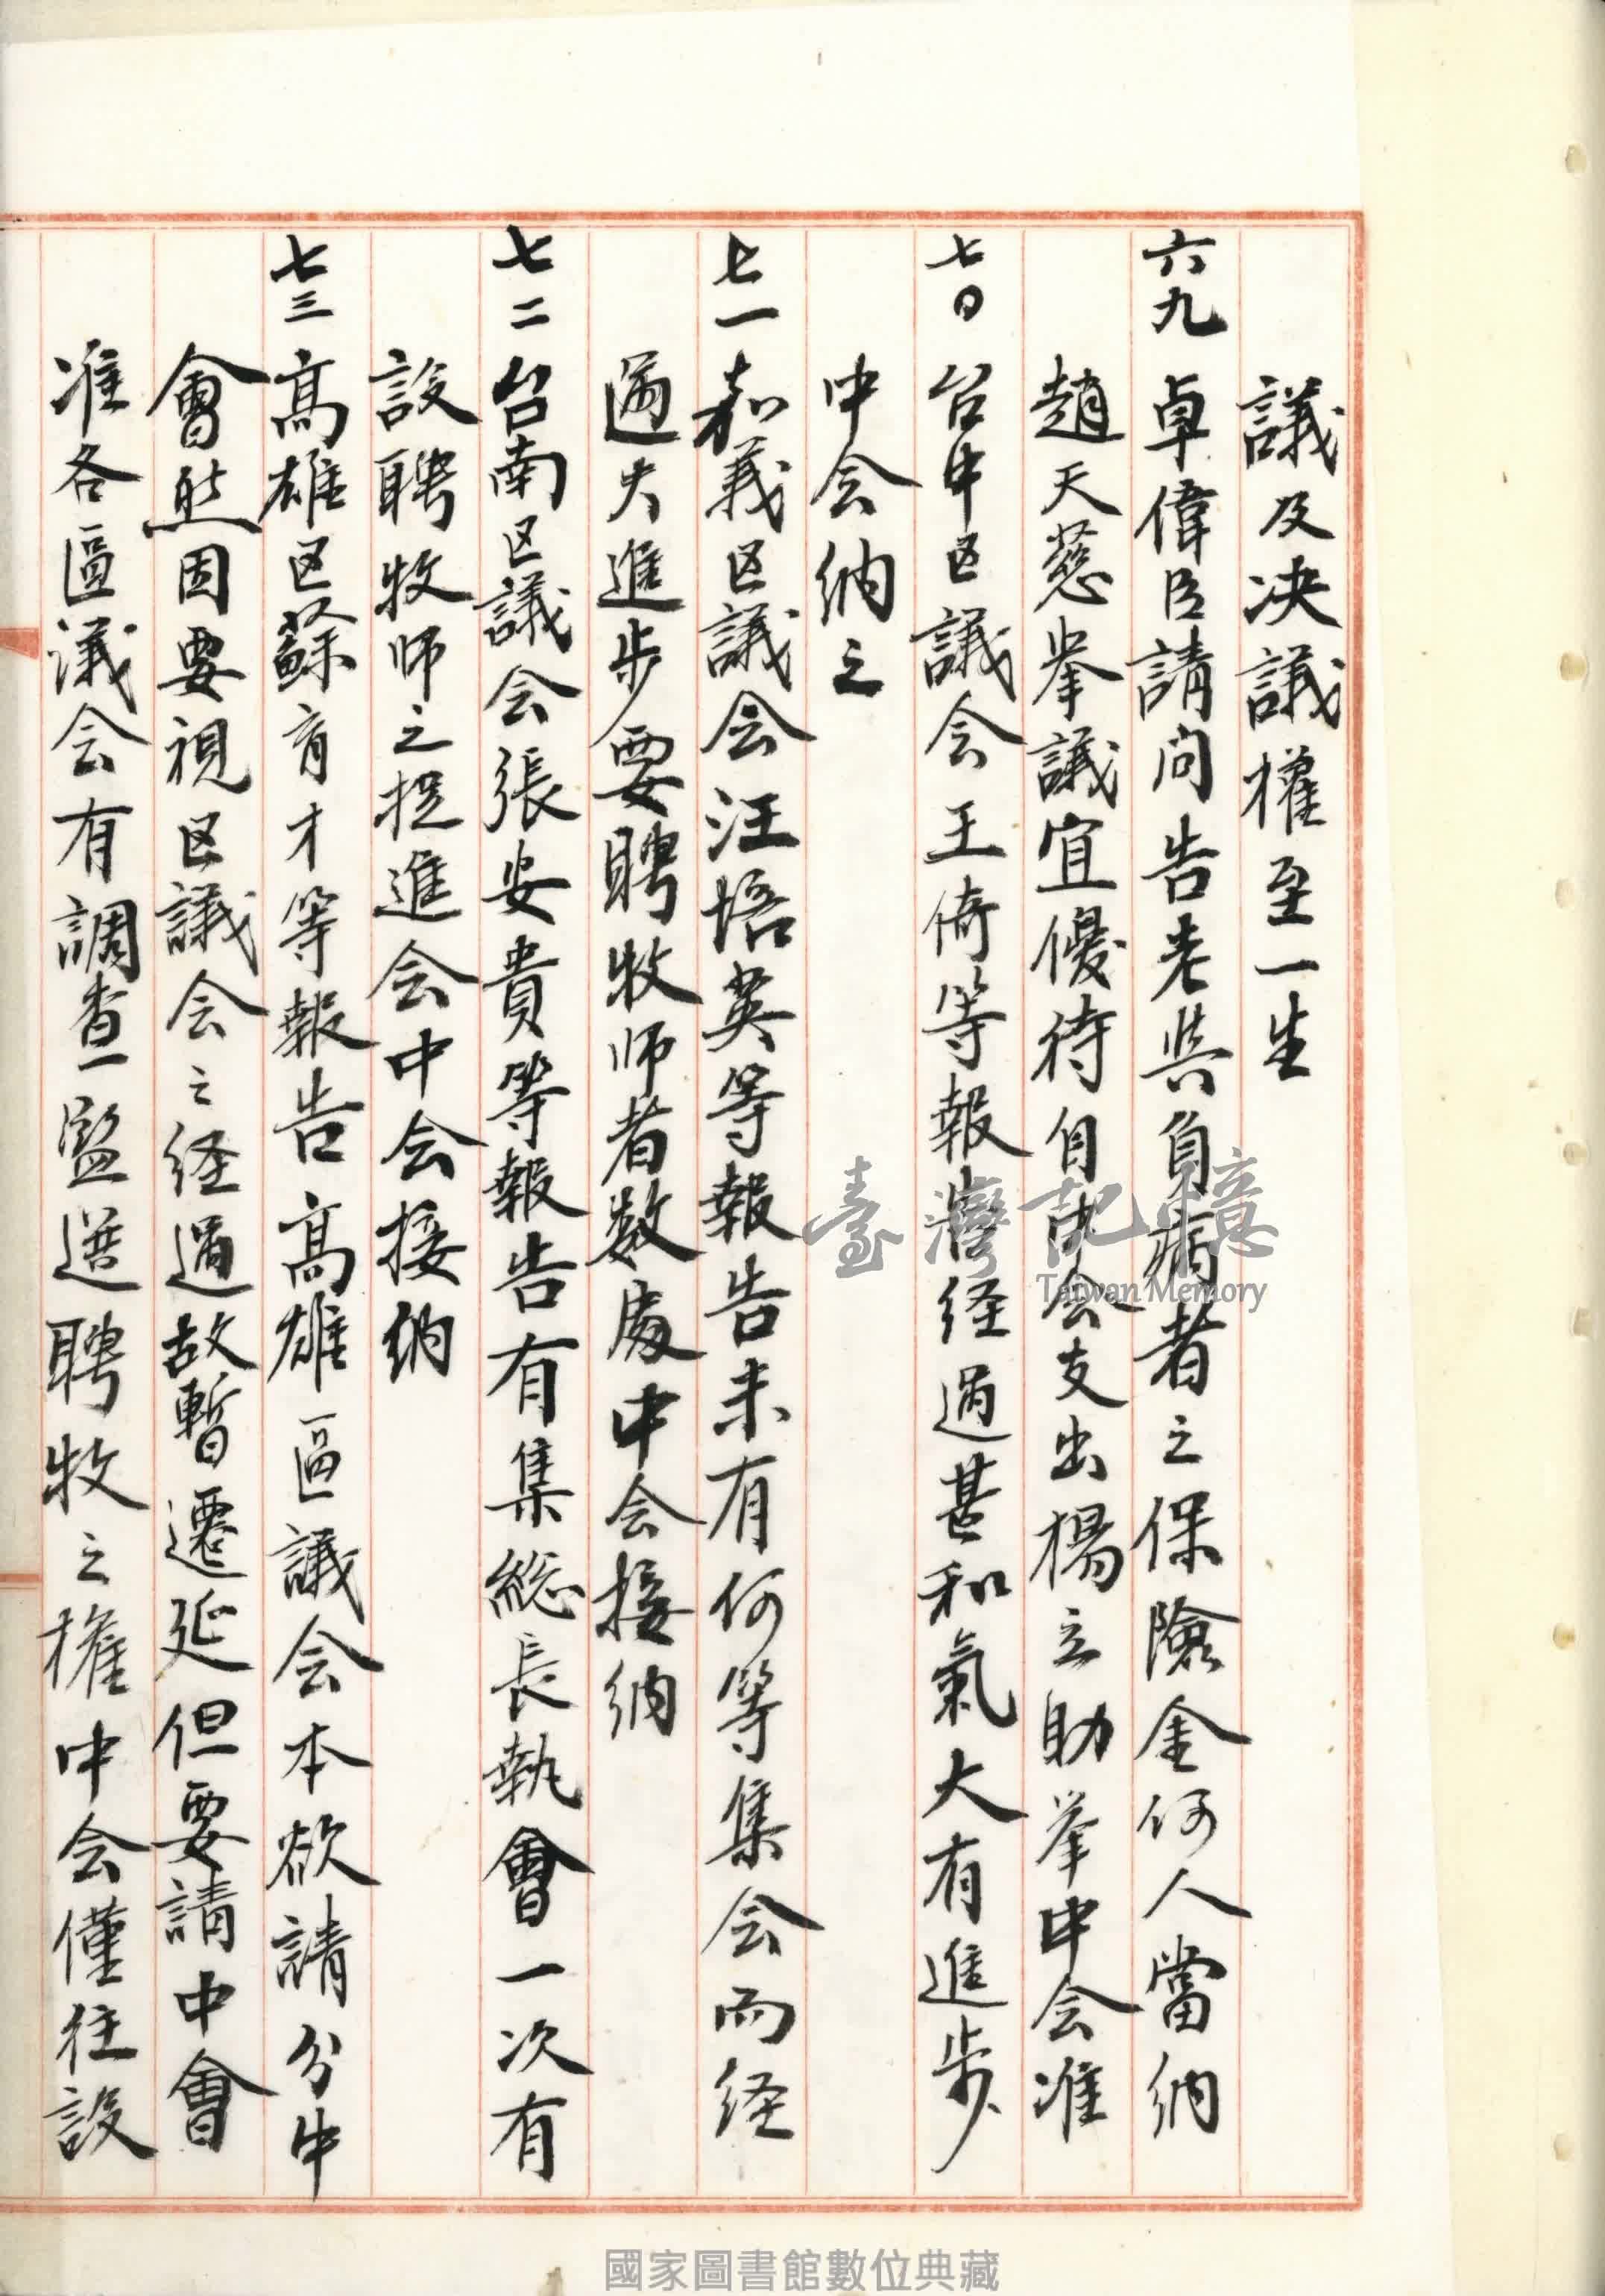 議及决議權至一生
六九 卓偉臣請问告老與負病者之保險金何人當納
趙天慈举議宜優待自中会支出楊立助举中会准
七〇 台中区議会王倚等報告経過甚和氣大有進步
中会納之
七一 嘉義区議会汪培英等報告未有何等集会而経
過大進步要聘牧师者数處中会接納
七二 台南区議会張安貴等報告有集総長執會一次有
設聘牧师之捉進会中会接納
七三 高雄区蘇育才等報告高雄區議会本欲請分中
會然因要視区議会之経過故暫遷延但要請中會
准各區議会有調查監選聘牧之權中会僅往設
臺灣記憶
Taiwan Memory
國家圖書館數位典藏